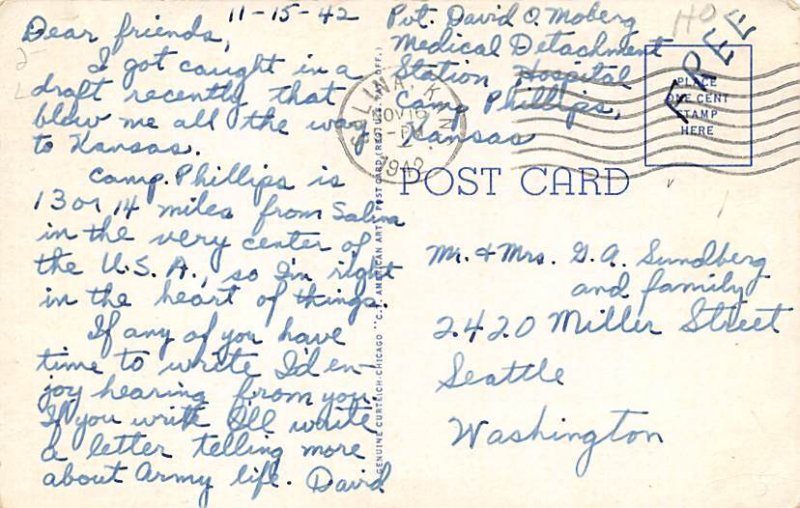 11-15-42
Dear friends,
I got caught in a
draft recently that
blew me all the way
to Kansas.
Camp Phillips is
13 or 14 miles from Salina
in the very center of
the U.S.A., so I'm right
in the heart of things.
If any of you have
time to write I'd en-
joy hearing from you.
If you write I'll write
a letter telling more
about Army life. David
Pvt. David O. Moberg
Medical Detachment
Station Hospital
Camp Phillips,
Kansas
FREE
PLACE
ONE CENT
STAMP
HERE
SALINA, KANS.
NOV 16
PM
1942
POST CARD
Mr. & Mrs. G. A. Sundberg
and family
2420 Miller Street
Seattle
Washington
GENUINE CURTEICH-CHICAGO "C.T. AMERICAN ART" POST CARD (REG. U.S. PAT. OFF.)